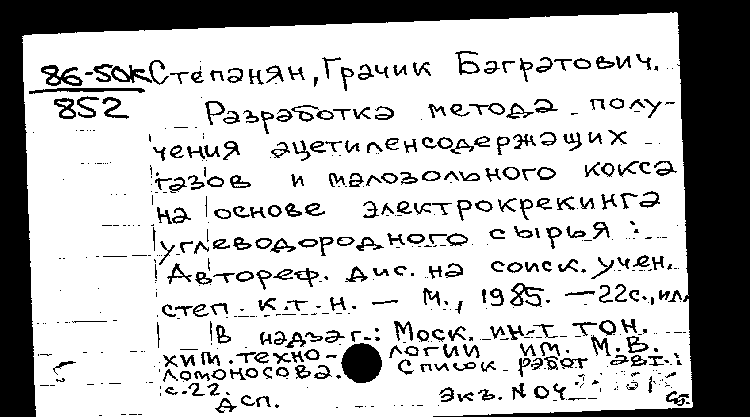 86-50к Степанян, Грачик Багратович.
852
Разработка метода полу-
чения ацетиленсодержащих
газов и малозольного кокса
на основе электрокрекинга
углеводородного сырья :
Автореф. дис. на соиск. учен.
степ. к.т.н. — М., 1985. — 22с., ил.
В надзаг.: Моск. ин-т тон.
хим. техно- логии им. М.В.
Ломоносова. Список работ авт.:
с.22.
Асп. Экз. N 04